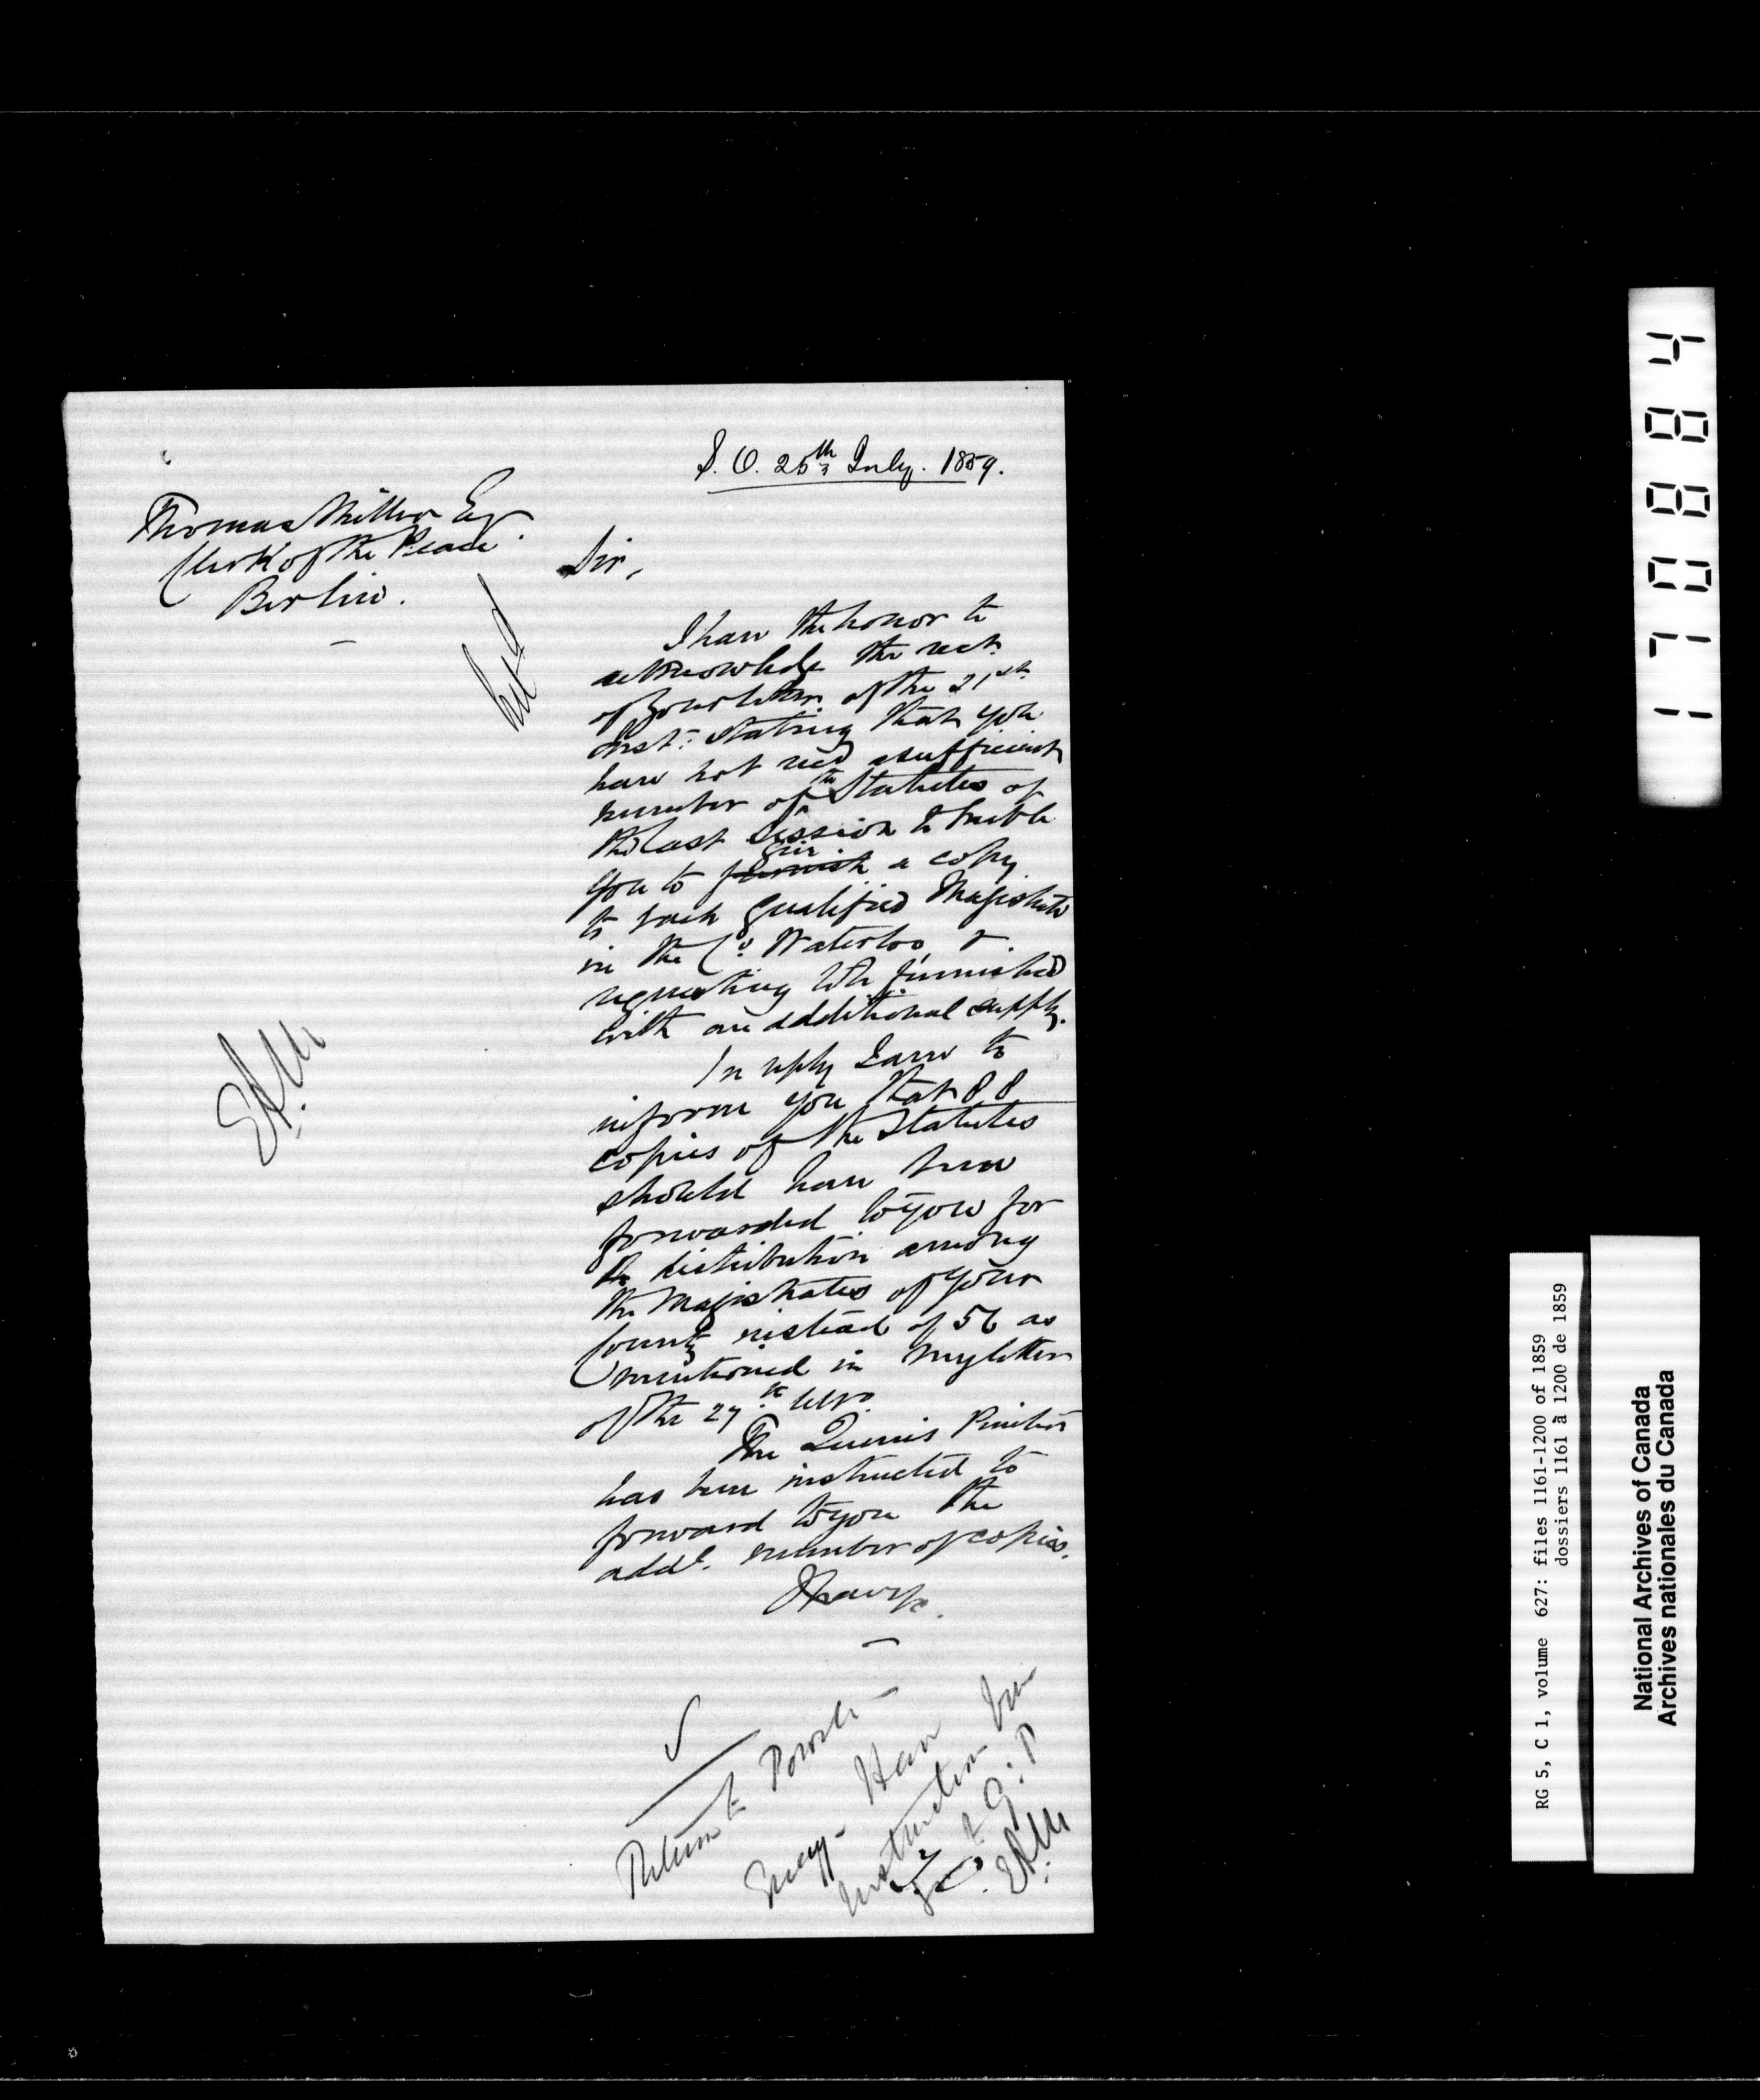 S. O. 25th July. 1859.
Thomas Miller Esq.
Clerk of the Peace
Berlin.
Sir,
I have the honor to
acknowledge the rect.
of your letter of the 21st
inst: stating that you
have not recd a sufficient
number of the Statutes of
the last Session to enable
you to furnish give a copy
to each qualified Magistrate
in the Co. Waterloo, &
requesting to be furnished
with an additional supply.
In reply I am to
inform you that 88
copies of the Statutes
should have been
forwarded to you for
distribution among
the Magistrates of your
County instead of 56 as
mentioned in my letter
of the 27th ulto.
The Queen's Printer
has been instructed to
forward to you the
addl. number of copies.
I have &c.
EAM
Return to Powell
Have
Instructions been
to Q: P
EAM
1170884
RG 5, C 1, volume 627: files 1161-1200 of 1859
dossiers 1161 à 1200 de 1859
National Archives of Canada
Archives nationales du Canada